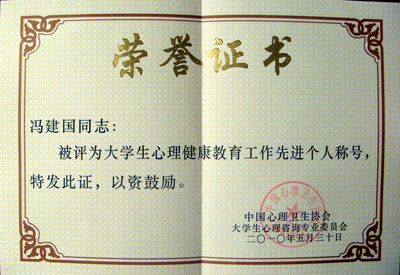 荣誉证书
冯建国同志：
被评为大学生心理健康教育工作先进个人称号，
特发此证，以资鼓励。
中国心理卫生协会
大学生心理咨询专业委员会
二〇一〇年五月三十日